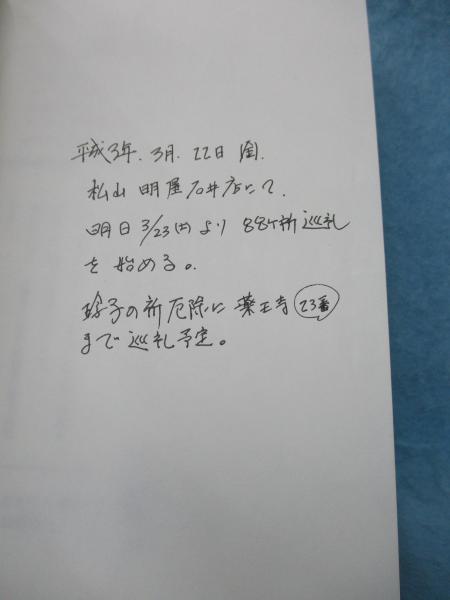 平成3年.3月.22日 金.
松山 明屋石井店にて.
明日3/23(土)より 88ヶ所巡礼
を始める。
子の新厄除に 薬王寺 23番
まで巡礼予定。